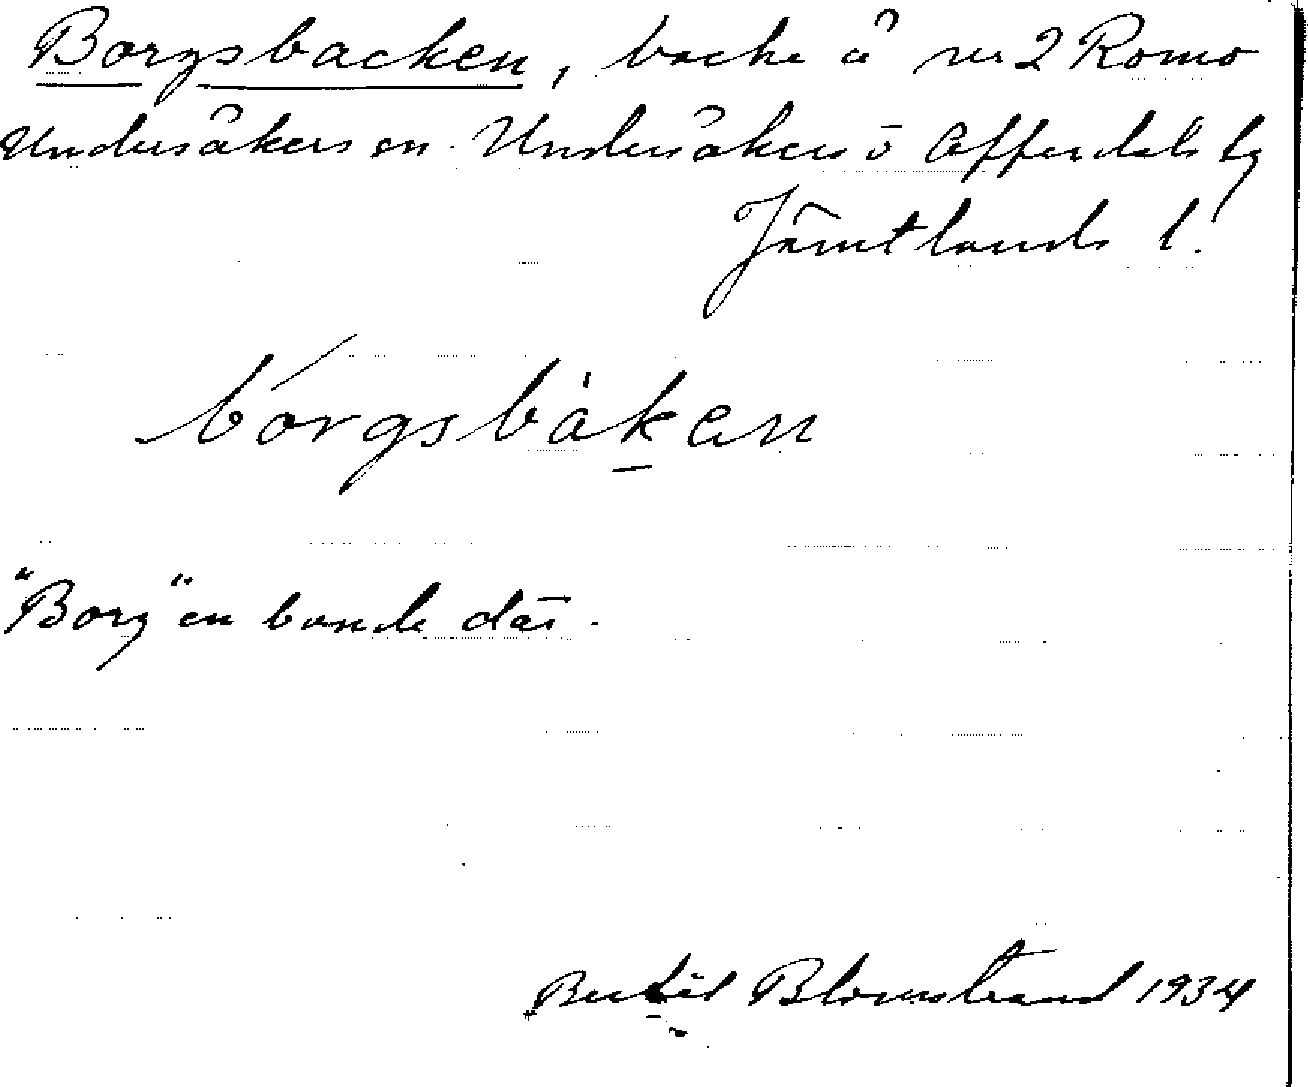 Borgsbacken, backe å nr 2 Romo
Undersåkers sn. Undersåkers o Offerdals tg
Jämtlands l.
bórgsbàken
"Borg" en bonde där.
Bertil Blomstrand 1934